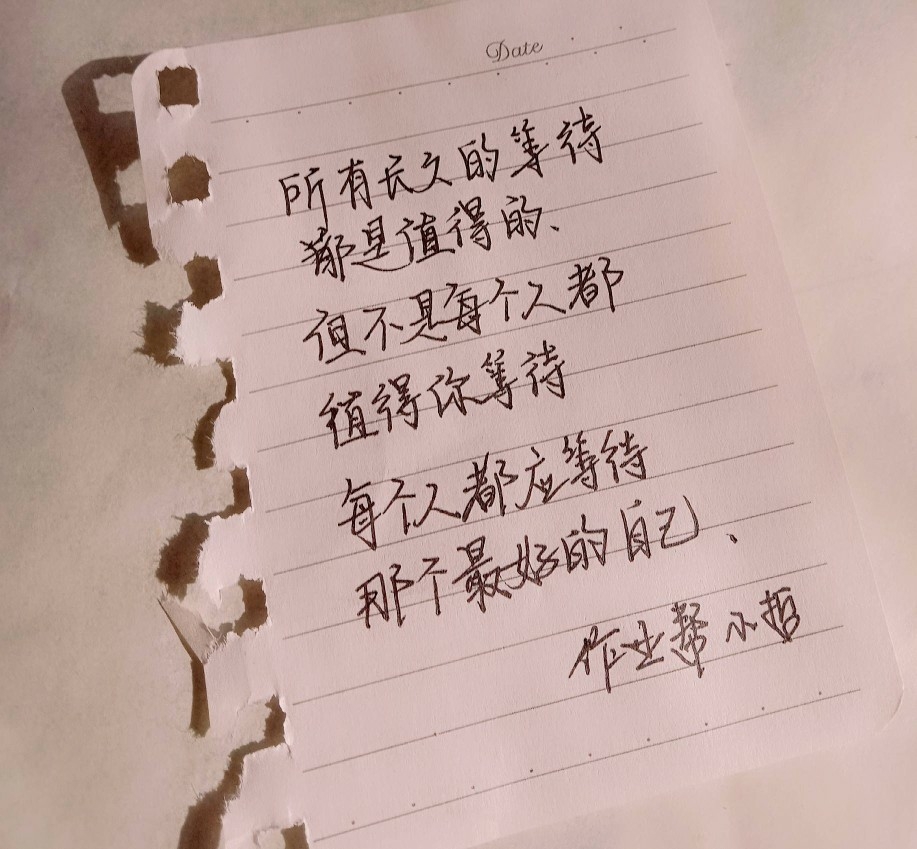 Date
所有长久的等待
都是值得的、
但不是每个人都
值得你等待
每个人都应等待
那个最好的自己、
作业帮小哲